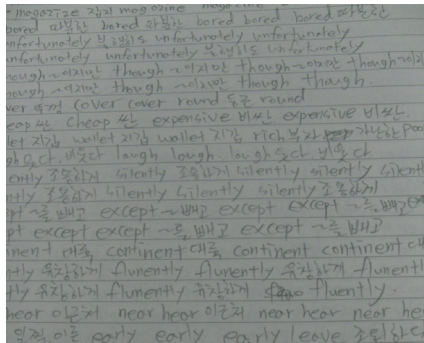 magazine 잡지 magazine magazine
bored 따분한 bored 따분한 bored bored bored 따분한
unfortunately 불행히도 unfortunately unfortunately
unfortunately unfortunately 불행히도 unfortunately
though ~이지만 though ~이지만 though ~이지만 though ~이지
though ~이지만 though ~이지만 though though.
ver 뚜껑 cover cover round 둥근 round
eap 싼 cheap 싼 expensive 비싼 expensive 비싼.
let 지갑 wallet 지갑 wallet 지갑 rich 부자 가난한 poo
웃다. 비웃다 laugh laugh laugh 웃다 비웃다
ently 조용하게 silently 조용하게 silently silently silent
ntly 조용하게 silently silently silently 조용하게
pt ~을 빼고 except ~빼고 except except ~을 빼고 ex
pt except except ~을 빼고 except ~을 빼고
inent 대륙 continent 대륙 continent continent 대
ntly 유창하게 flunently flunently 유창하게 flunentl
tly 유창하게 flunently 유창하게 fluently.
hear 이근처 near hear 이근처 near hear near he
일찍, 이른 early early early leave